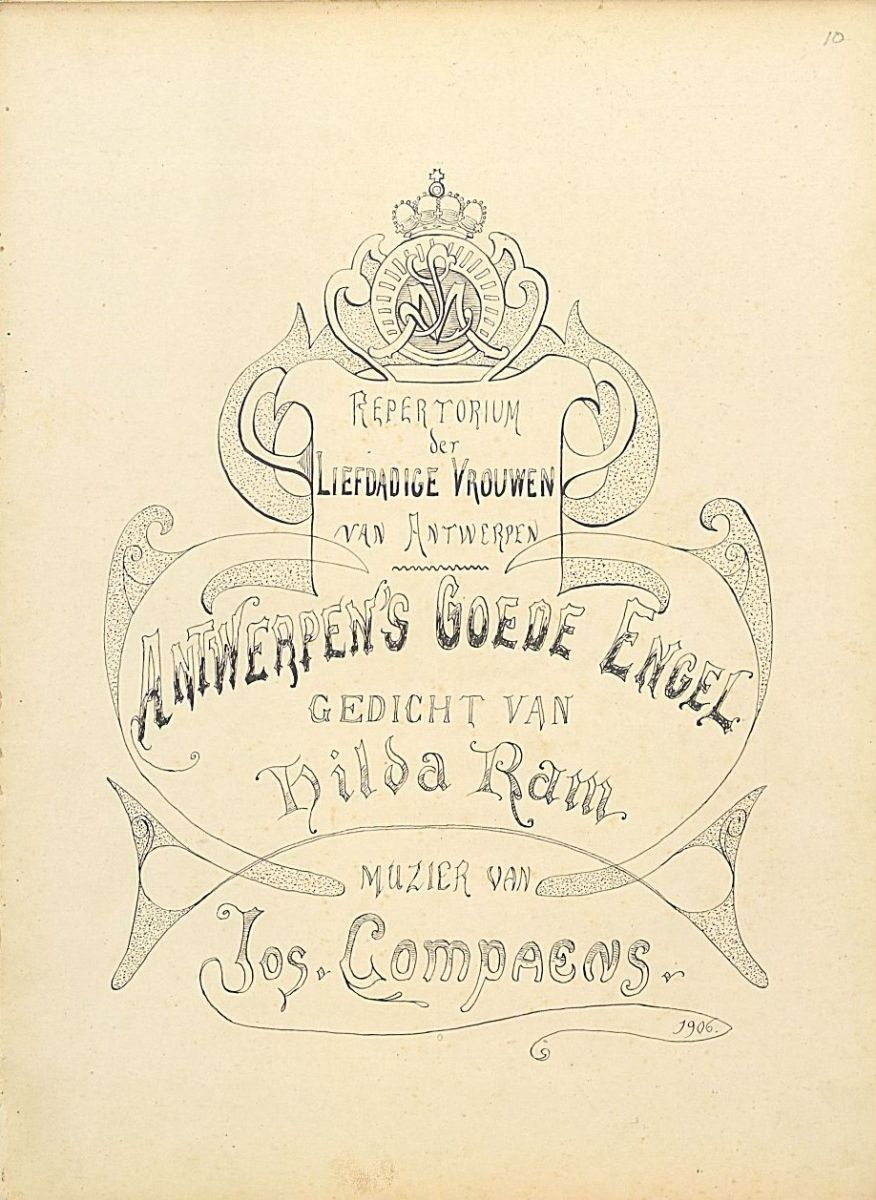 10
REPERTORIUM
der
LIEFDADIGE VROUWEN
VAN ANTWERPEN
ANTWERPEN'S GOEDE ENGEL
GEDICHT VAN
Hilda Ram
MUZIEK VAN
Jos. Compaens.
1906.